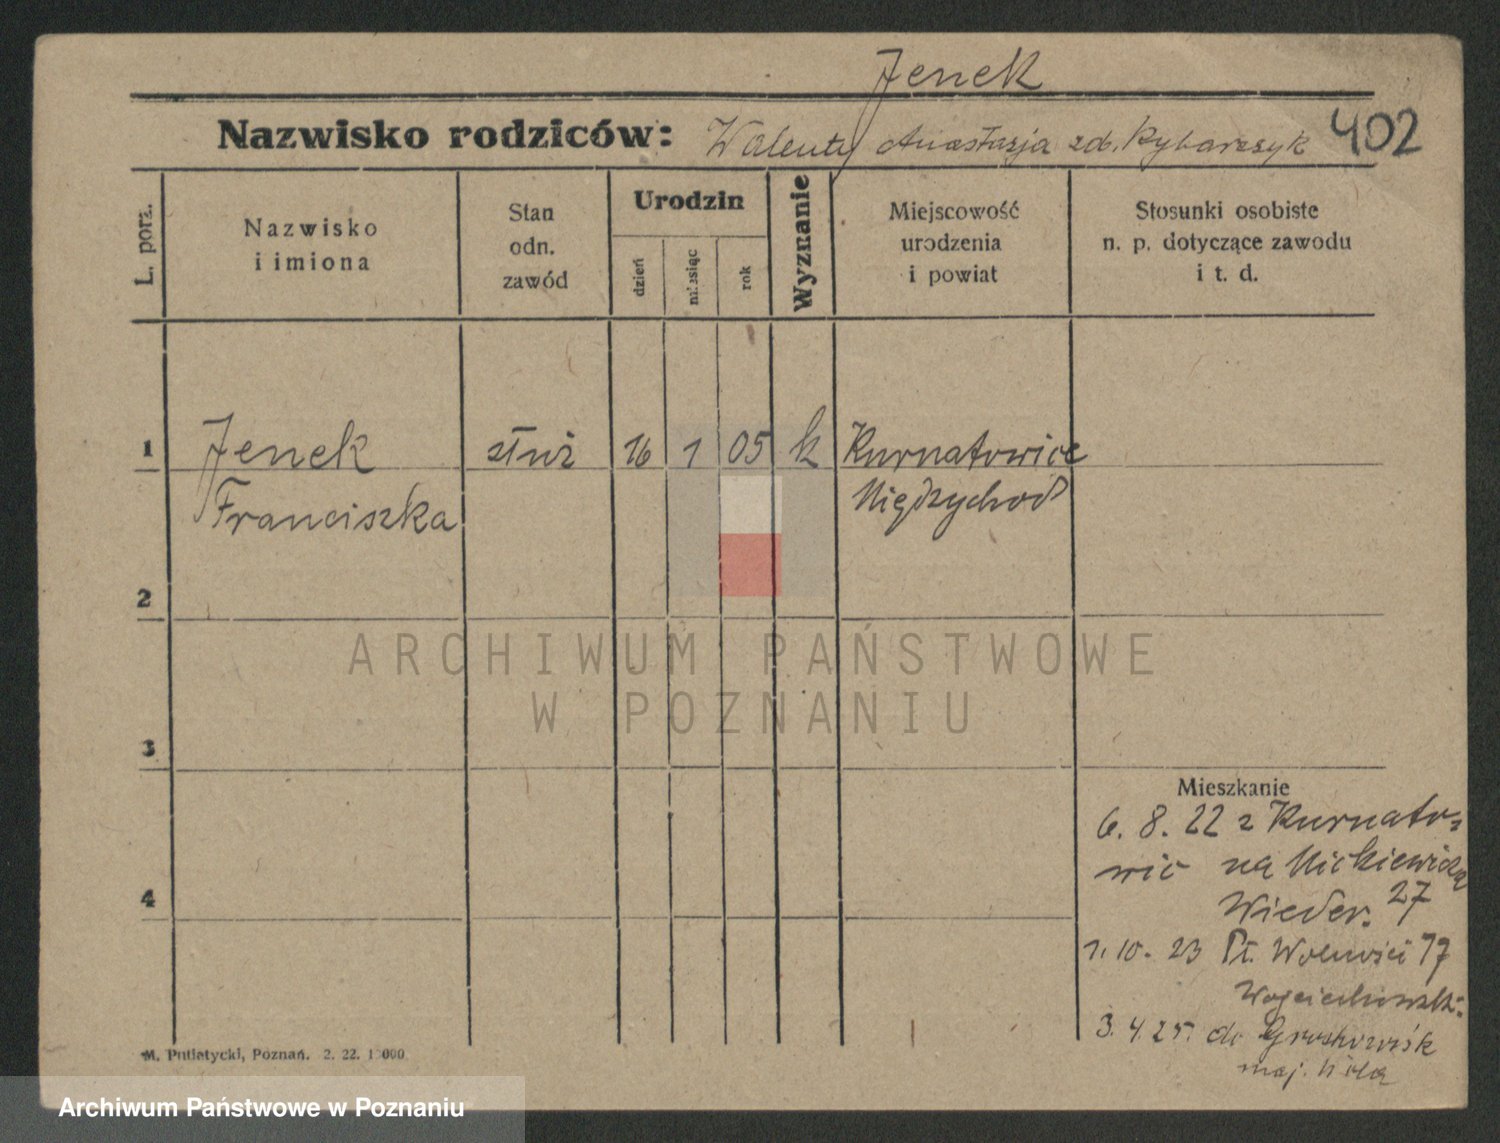 Jenek
Nazwisko rodziców: Walenty Anastazja zd. Rybarczyk 402
L. porz.
Nazwisko
i imiona
Stan
odn.
zawód
Urodzin
dzień
miesiąc
rok
Wyznanie
Miejscowość
urodzenia
i powiat
Stosunki osobiste
n. p. dotyczące zawodu
i t. d.
1 Jenek służ 16 1 05 k Kurnatowice
Franciszka Międzychod
2
ARCHIWUM PAŃSTWOWE
W POZNANIU
3
Mieszkanie
6. 8. 22 z Kurnato-
wic na Mickiewicza
4
27
Wieder.
1. 10. 23 Pl. Wolności 17
Wojciechowski.
3. 4. 25. do
maj.
M. Putiatycki, Poznań. 2. 22.
Archiwum Państwowe w Poznaniu